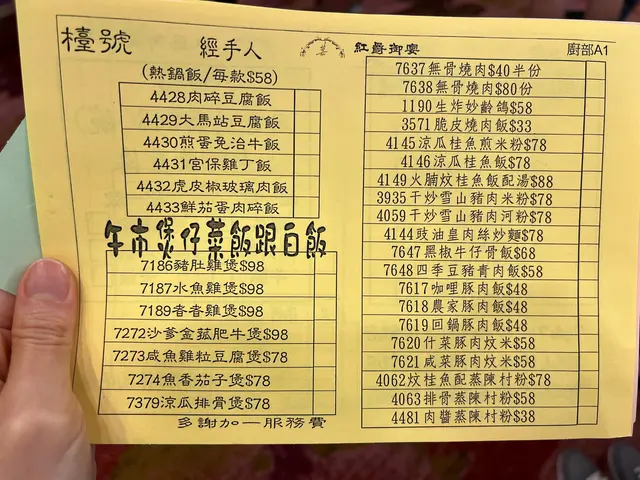 檯號 經手人 紅爵御宴 廚部A1
(熱鍋飯/每款$58)
4428肉碎豆腐飯
4429大馬站豆腐飯
4430煎蛋免治牛飯
4431宮保雞丁飯
4432虎皮椒玻璃肉飯
4433鮮茄蛋肉碎飯
午市煲仔菜飯跟白飯
7186豬肚雞煲$98
7187水魚雞煲$98
7189香香雞煲$98
7272沙爹金菇肥牛煲$98
7273咸魚雞粒豆腐煲$78
7274魚香茄子煲$78
7379涼瓜排骨煲$78
多謝加一服務費
7637無骨燒肉$40半份
7638無骨燒肉$80份
1190生炸妙齡鴿$58
3571脆皮燒肉飯$33
4145涼瓜桂魚煎米粉$78
4146涼瓜桂魚飯$78
4149火腩炆桂魚飯配湯$88
3935干炒雪山豬肉米粉$78
4059干炒雪山豬肉河粉$78
4144豉油皇肉絲炒麵$78
7647黑椒牛仔骨飯$68
7648四季豆豬青肉飯$58
7617咖哩豚肉飯$48
7618農家豚肉飯$48
7619回鍋豚肉飯$48
7620什菜豚肉炆米$58
7621咸菜豚肉炆米$58
4062炆桂魚配蒸陳村粉$78
4063排骨蒸陳村粉$58
4481肉醬蒸陳村粉$38